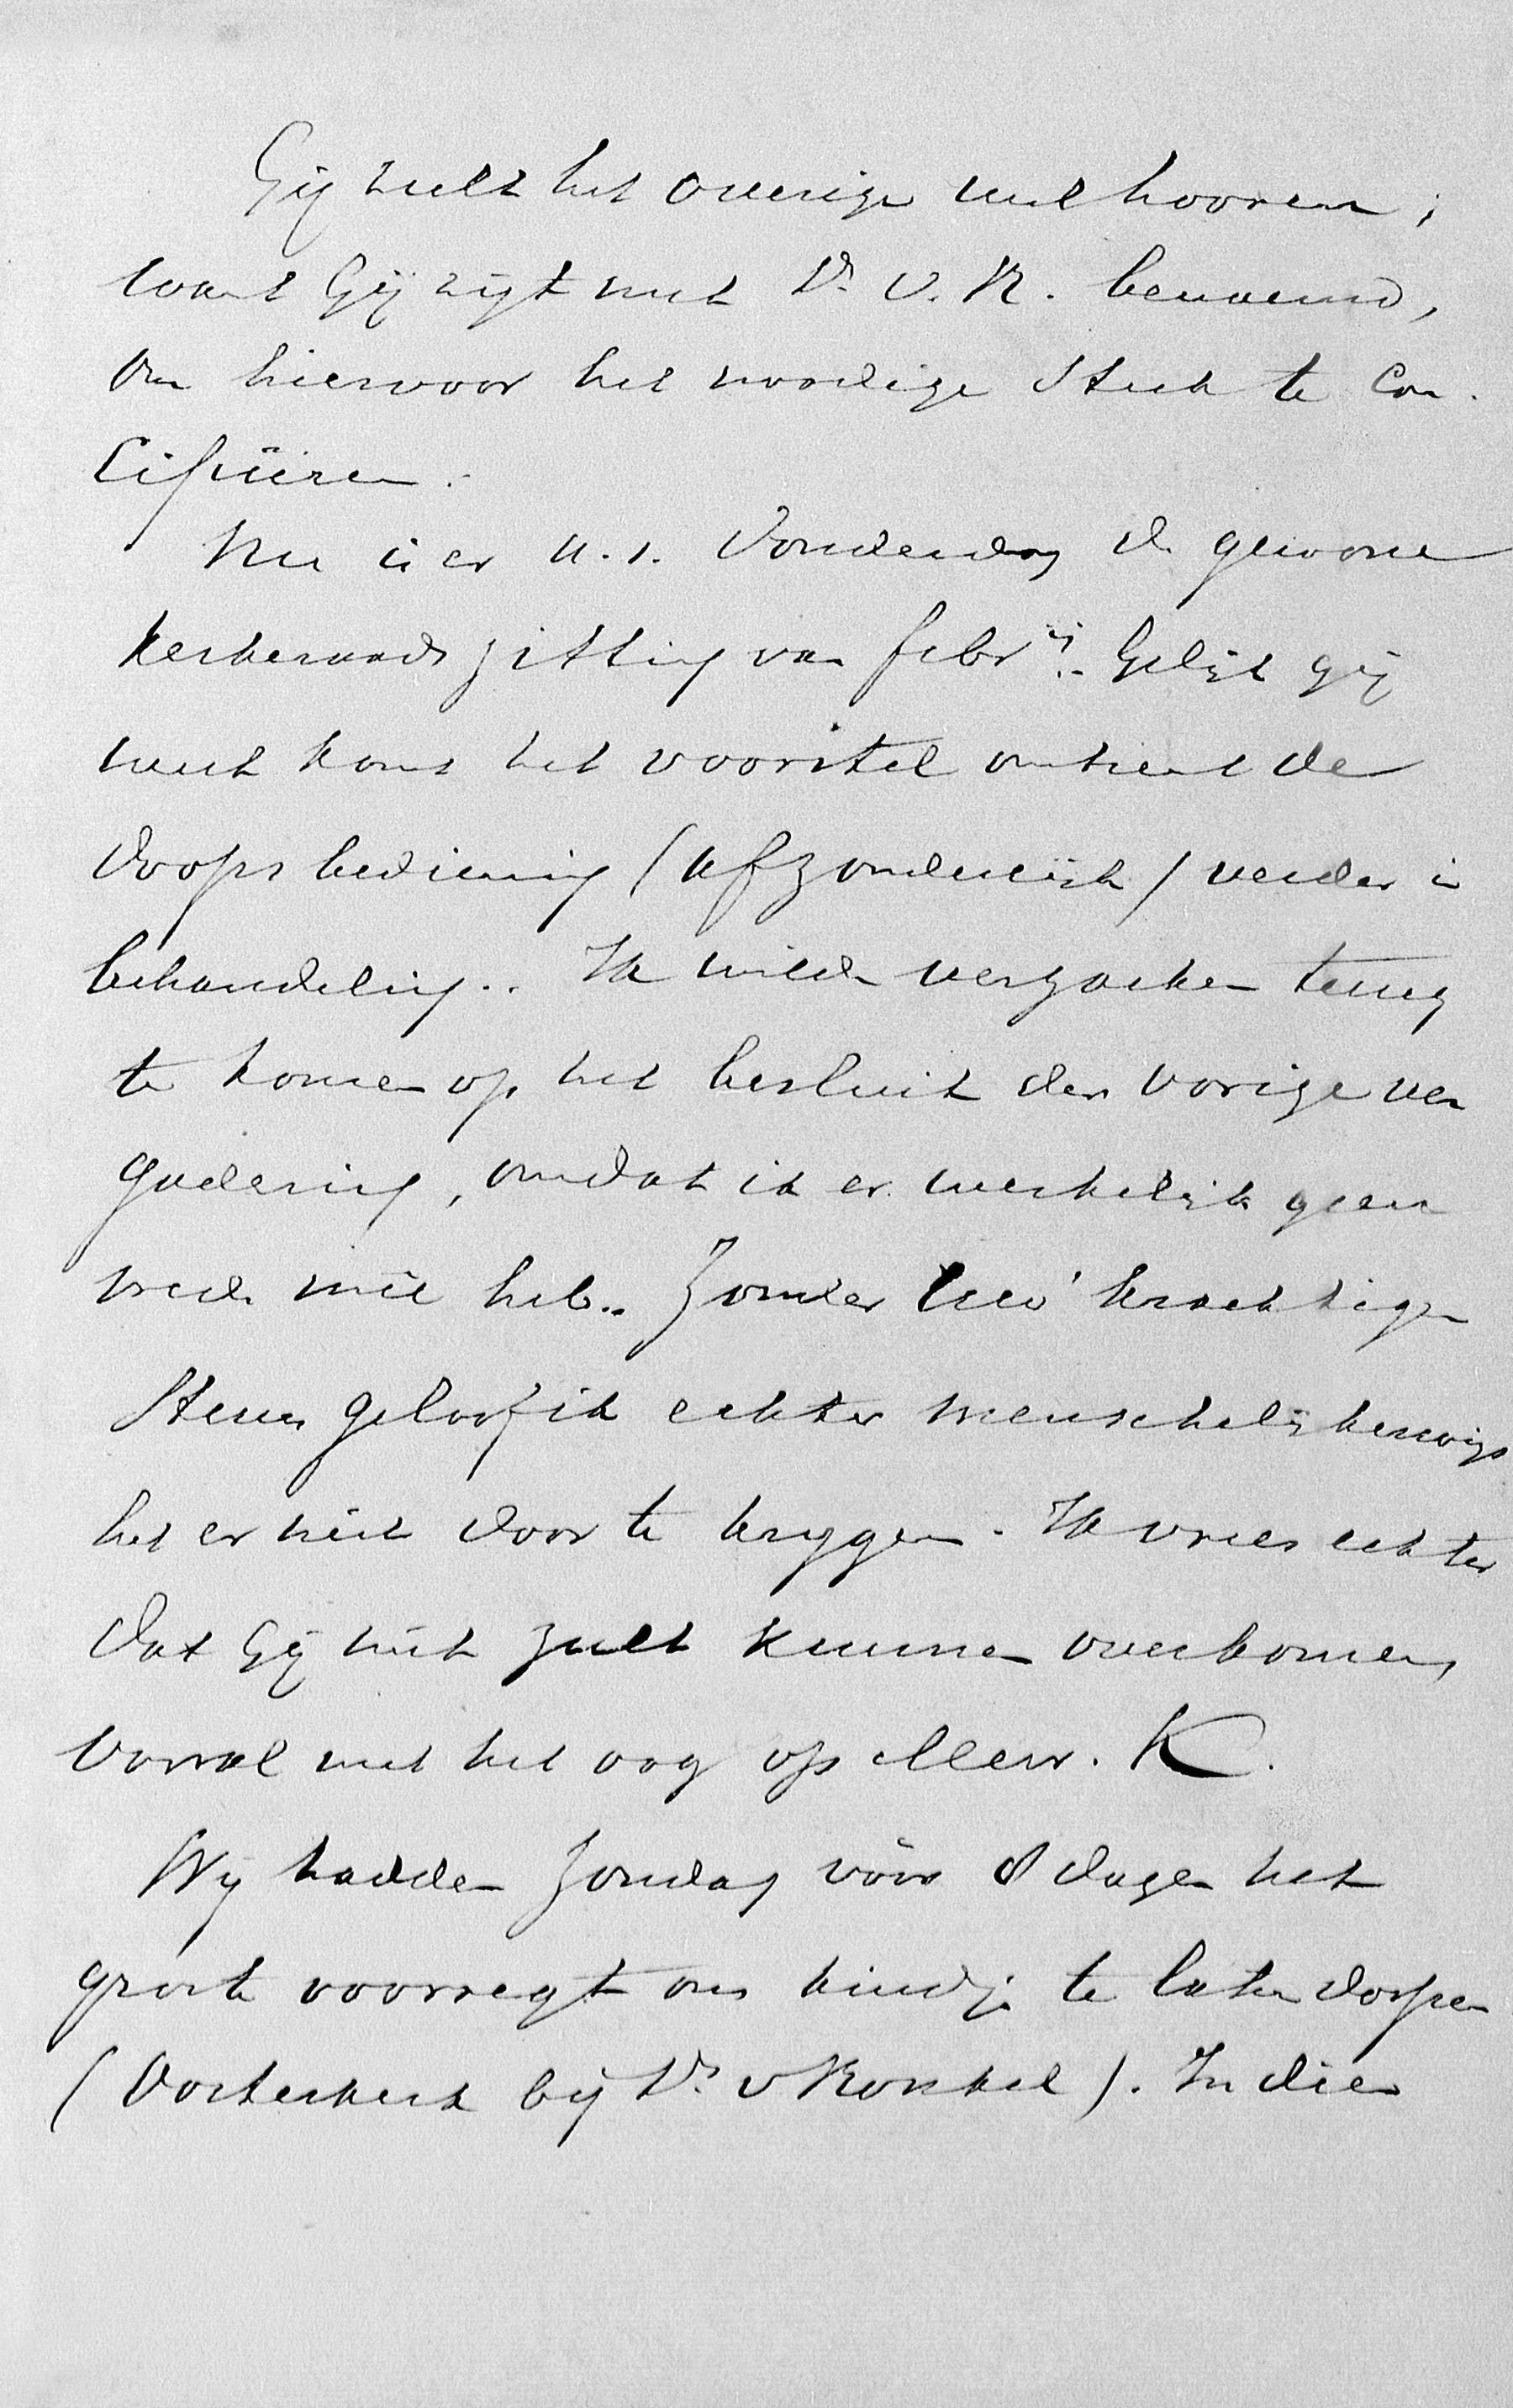 Gij zult het overige wel hooren;
want Gij zijt met Dr. v. R. benoemd,
om hiervoor het noodige stuk te con-
cipiëeren.
Nu is er a.s. Donderdag de gewone
kerkeraadszitting van Febrij. Gelijk gij
weet komt het voorstel omtrent de
Doopsbediening (afzonderlijk) verder in
behandeling.. Ik wilde verzoeken terug
te komen op het besluit der vorige ver
gadering, omdat ik er werkelijk geen
vrede mêe heb.. Zonder Uw' krachtigen
steun geloof ik echter menschelijkerwijs
het er niet door te krijgen. Ik vrees echter
dat Gij niet zult kunnen overkomen,
vooral met het oog op Mevr. K.
Wij hadden Zondag vóór 8 dagen het
groote voorregt ons kindje te laten doopen
(Oosterkerk bij Ds. v Ronkel). In dien